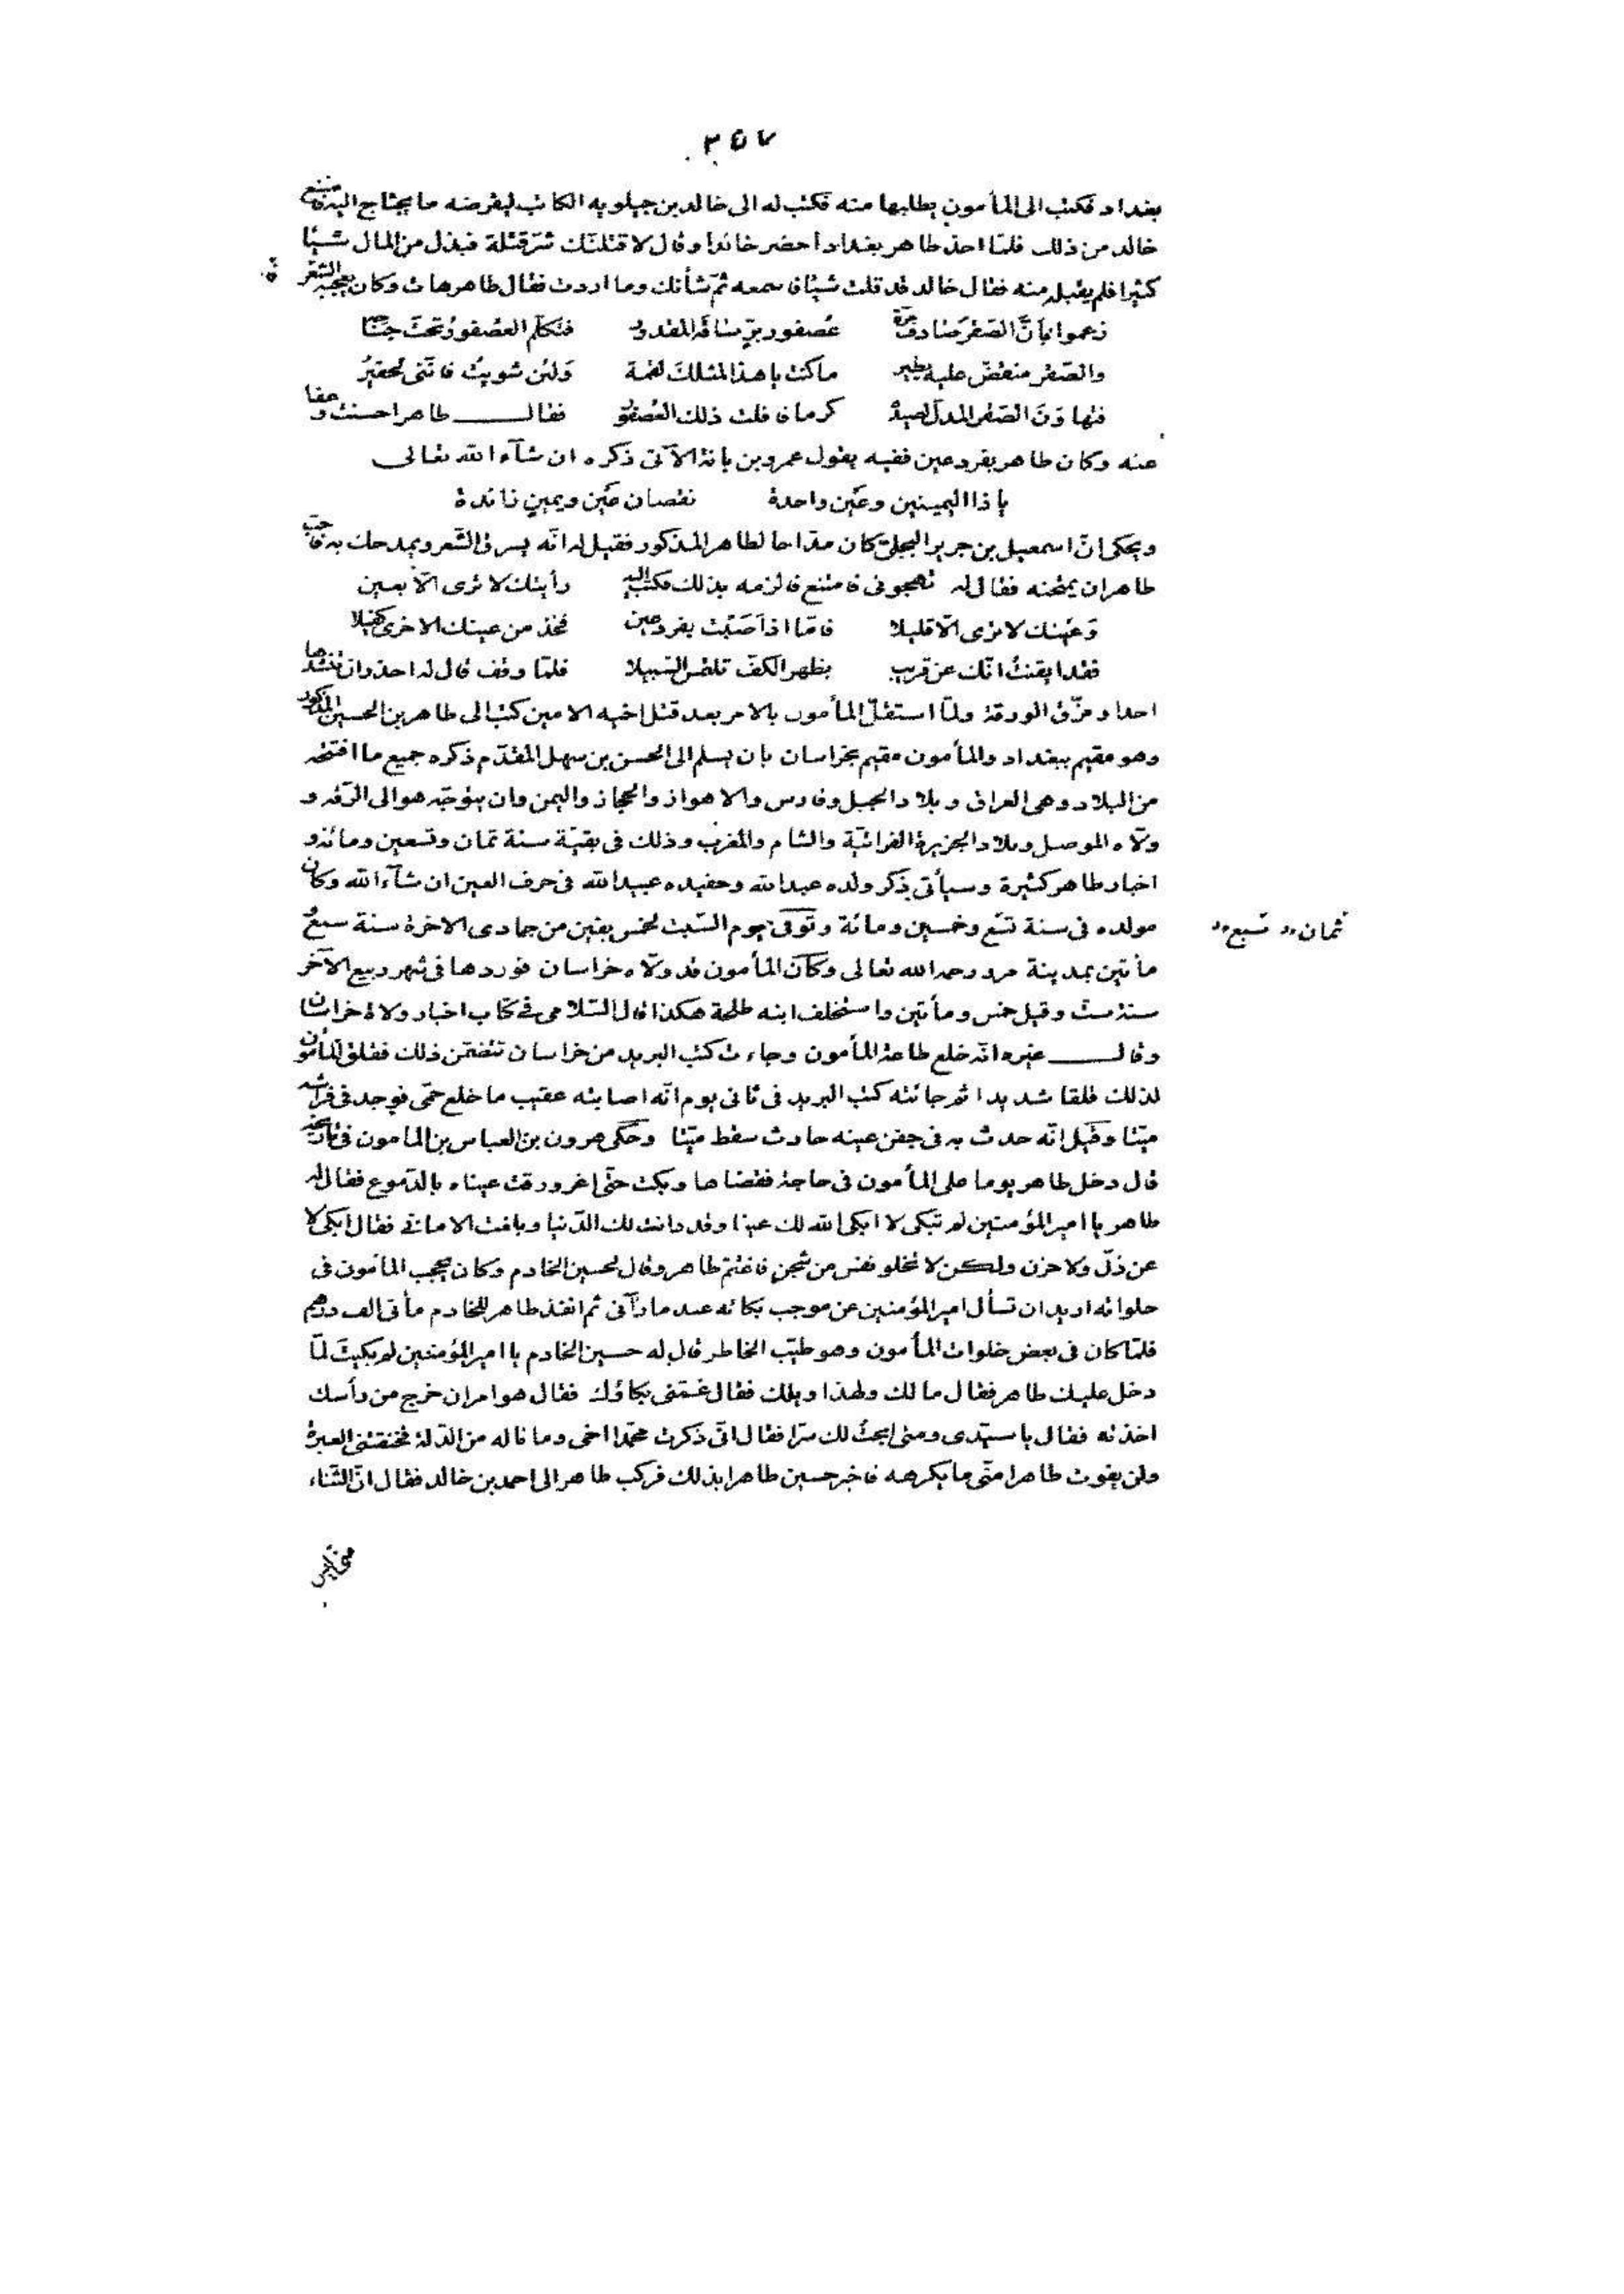 ٣٥٧
بغداد فكتب الى المأمون يطلبها منه فكتب له الى خالد بن جيلويه الكاتب ليقرضه ما يحتاج اليه فامتنع
خالد من ذلك فلما اخذ طاهر بغداد احضر خالدا وقال لاقتلنك شر قتلة فبذل من المال شيئا
كثيرا فلم يقبله منه فقال خالد قد قلت شيئا فاسمعه ثم شأنك وما اردت فقال طاهر هات وكان يعجبه الشعر
زعموا بأن الصقر صادف مرة عصفور بر ساقه المقدور فتكلم العصفور تحت جناحه
والصقر منقض عليه يطير ما كنت يا هذا لمثلك لقمة ولئن شويت فانني لحقير
فتهاون الصقر المدل بصيده كرما فافلت ذلك العصفور فقال طاهر احسنت وعفا
عنه وكان طاهر بفرد عين ففيه يقول عمرو بن بانة الآتى ذكره ان شآء الله تعالى
يا ذا اليمينين وعين واحدة نقصان عين ويمين زائدة
ويحكى انّ اسمعيل بن جرير البجلى كان مدّاحا لطاهر المذكور فقيل له انّه يسرق الشعر ويمدحك به فاحب
طاهر ان يمتحنه فقال له تهجونى فامتنع فالزمه بذلك فكتب اليه رأيتك لا ترى الّا بعين
وعينك لا ترى الّا قليلا فامّا اذ اصبت بفرد عين فخذ من عينك الاخرى كفيلا
فقد ايقنت انّك عن قريب بظهر الكف تلتمس السبيلا فلمّا وقف قال له احذر ان تنشدها
احدا ومزّق الورقة ولمّا استقلّ المأمون بالامر بعد قتل اخيه الامين كتب الى طاهر بن الحسين المذكور
وهو مقيم ببغداد والمأمون مقيم بخراسان بان يسلم الى الحسن بن سهل المقدّم ذكره جميع ما افتتحه
من البلاد وهى العراق وبلاد الجبل وفارس والاهواز والحجاز واليمن وان يتوجّه هو الى الرّقه و
ولّاه الموصل وبلاد الجزيرة الفراتيّة والشام والمغرب وذلك فى بقيّة سنة ثمان وتسعين ومائة و
اخبار طاهر كثيرة وسيأتى ذكر ولده عبد الله وحفيده عبيد الله فى حرف العين ان شآء الله وكان
مولده فى سنة تسع وخمسين ومائة وتوفى يوم السّبت لخمس بقين من جمادى الاخرة سنة سبع و
ثمان سبع
مأتين بمدينة مرو رحمه الله تعالى وكان المأمون قد ولّاه خراسان فوردها فى شهر ربيع الآخر
سنة ست وقيل خمس ومأتين واستخلف ابنه طلحة هكذا قال السّلامى فى كتاب اخبار ولاة خراسان
وقال غيره انّه خلع طاعة المأمون وجاءت كتب البريد من خراسان تتضمّن ذلك فقلق المأمون
لذلك قلقا شديدا ثم جائته كتب البريد فى ثانى يوم انّه اصابته عقيب ما خلع حمّى فوجد فى فراشه
ميّتا وقيل انّه حدث به فى جفن عينه حادث سقط ميّتا وحكى هرون بن العباس بن المامون فى تاريخه
قال دخل طاهر يوما على المأمون فى حاجة فقضاها وبكت حتّى اغرورقت عيناه بالدّموع فقال له
طاهر يا امير المؤمنين لم تبكى لا ابكى الله لك عينا وقد دانت لك الدّنيا وبلغت الامانى فقال ابكى لا
عن ذلّ ولا حزن ولكن لا تخلو نفس من شجن فاغتم طاهر وقال لحسين الخادم وكان يحجب المأمون فى
خلواته اريد ان تسأل امير المؤمنين عن موجب بكائه عند ما رآنى ثم انفذ طاهر للخادم مأتى الف درهم
فلمّا كان فى بعض خلوات المأمون وهو طيّب الخاطر قال له حسين الخادم يا امير المؤمنين لم بكيت لمّا
دخل عليك طاهر فقال مالك ولهذا ويلك فقال غمّنى بكاؤك فقال هو امر ان خرج من رأسك
اخذته فقال يا سيّدى ومتى ابحت لك سرّا فقال انّى ذكرت محمّدا اخى وما ناله من الذلة فخنقتنى العبرة
ولن يفوت طاهرا منّى ما يكرهه فاخبر حسين طاهرا بذلك فركب طاهر الى احمد بن خالد فقال انّ الثّناء